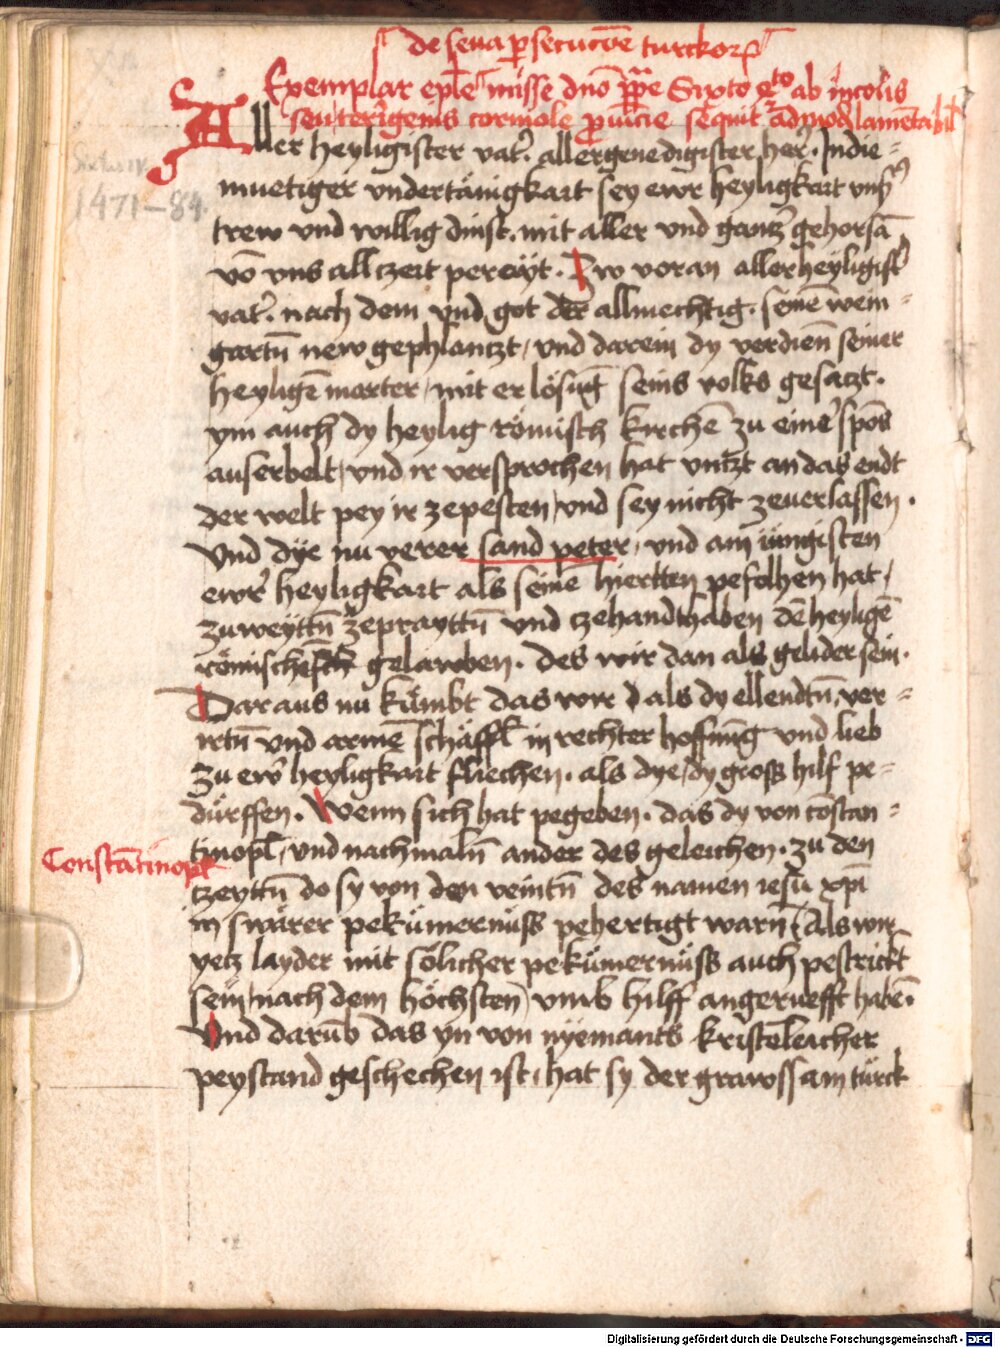 de seua p̄secuco̅e turckorꝝ
Exemplar ep̄le misse dn̄o pp̄e Sixto q̄to ab incolis
seu terigenis carniole p̄uincie sequit᷑ admodū lamētabil
Aller heyligister vat̓. allergenedigister her̓. Jn die=
muetiger vndertänigkart sey ewr̓ heyligkart vns̓
Sixtus IV
1471–84.
trew vnd willig dinst. mit aller vnd gantz̓ gehorsā
vō vns all czeit perayt. Zw voran aller heyligist̓
vat̓. nach dem vnd got der allmechtig. seinē wein=
gartn̄ new gephlanczt, vnd darein dy verdienn̄ seiner
heyligē marter, mit erlösūg seins volks gesaczt.
ym auch dy heylig römisch kirchē zu eine̓ spōs
auserbelt, vnd ir versprochen hat vntzt an das endt
der welt pey ir ze pesten, vnd sey nicht zeuerlassen.
Vnd dye nu verer sand peter, vnd am iungisten
ewr̓ heyligkart als seinē hiertten pefolhen hat,
zuweyttn̄ zeprayttn̄ vnd czehandthaben dē heyligē
römischen gelawben. des wir dan als gelider sein.
Daraus nu kümbt das wir als dy ellendtn̄, ver=
irtn̄ vnd armē schäffl̄ in rechter hoffnūg vnd lieb
zu ewr̓ heyligkart fliechen. als dye, dy gross hilf pe=
dürffen. Wenn sich hat pegeben. das dy von cōstan=
Constātinopl̄
tinopl̄, vnd nachmaln̄ ander des geleichen. zu den
czeyttn̄ do sy von den veintn̄ des namen iesū xp̄i
in swärer pekümernüss pehertigt warn̄ (Als wir
yetz layder mit sölicher pekümernüss auch pestrickt
sein, nach dem höchsten) vmb hilff angeruefft habē.
Vnd darūb das yn von nyemants kristēleicher
peystand geschechen ist, hat sy der grawssam türck
Digitalisierung gefördert durch die Deutsche Forschungsgemeinschaft - DFG